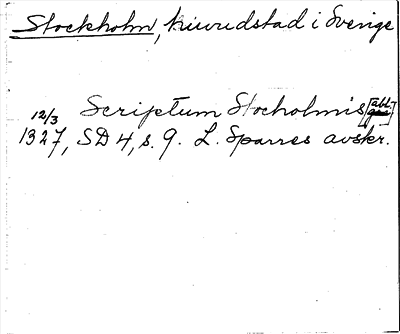 Stockholm, huvudstad i Sverige
12/3 Scriptum Stocholmis [abl.]
1327, SD 4, s. 9. L. Sparres avskr.